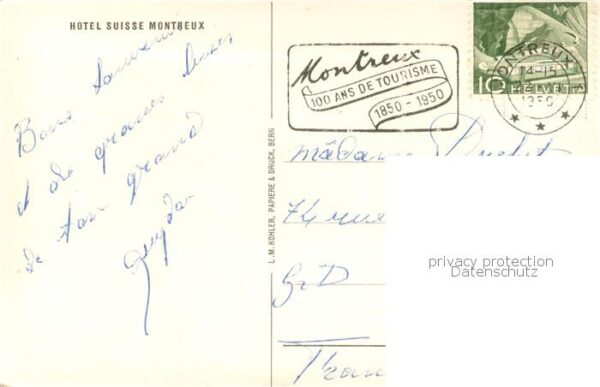 HOTEL SUISSE MONTREUX
Bons souvenirs
et de grosses bises
de ton grand
L. M. KOHLER, PAPIERE & DRUCK, BERN
Montreux
100 ANS DE TOURISME
1850 - 1950
10
HELVETIA
MONTREUX
14-15
1950
madame
74 rue
St D
privacy protection
Datenschutz